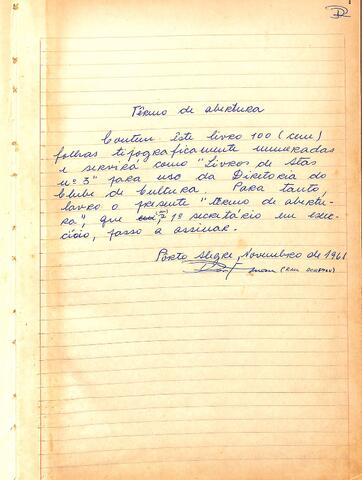 Têrmo de abertura
Contem êste livro 100 (cem)
folhas tipograficamente numeradas
e servirá como "Livros de Atas
nº 3" para uso da Diretoria do
Clube de Cultura. Para tanto,
lavro o presente "têrmo de abertu-
ra", que, 1º secretário em exer-
cício, passo a assinar.
Porto Alegre, Novembro de 1961